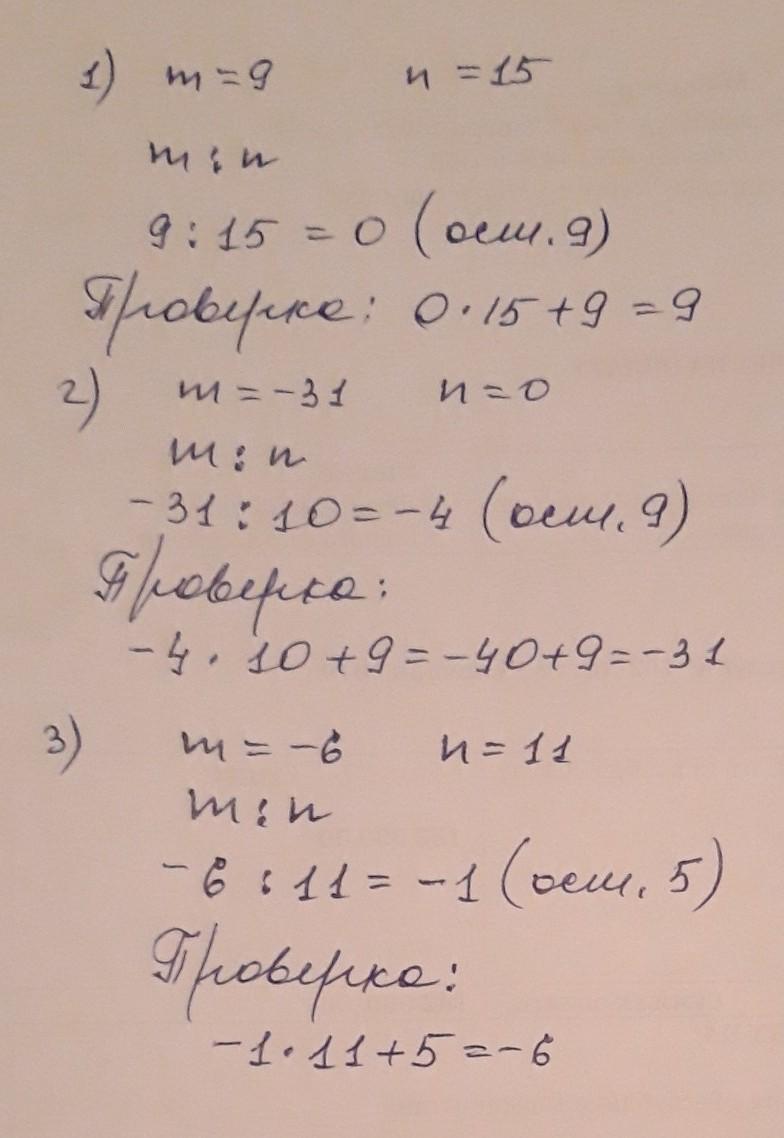 1) m = 9 n = 15
m : n
9 : 15 = 0 (ост. 9)
Проверка: 0 · 15 + 9 = 9
2) m = -31 n = 0
m : n
-31 : 10 = -4 (ост. 9)
Проверка:
-4 · 10 + 9 = -40 + 9 = -31
3) m = -6 n = 11
m : n
-6 : 11 = -1 (ост. 5)
Проверка:
-1 · 11 + 5 = -6